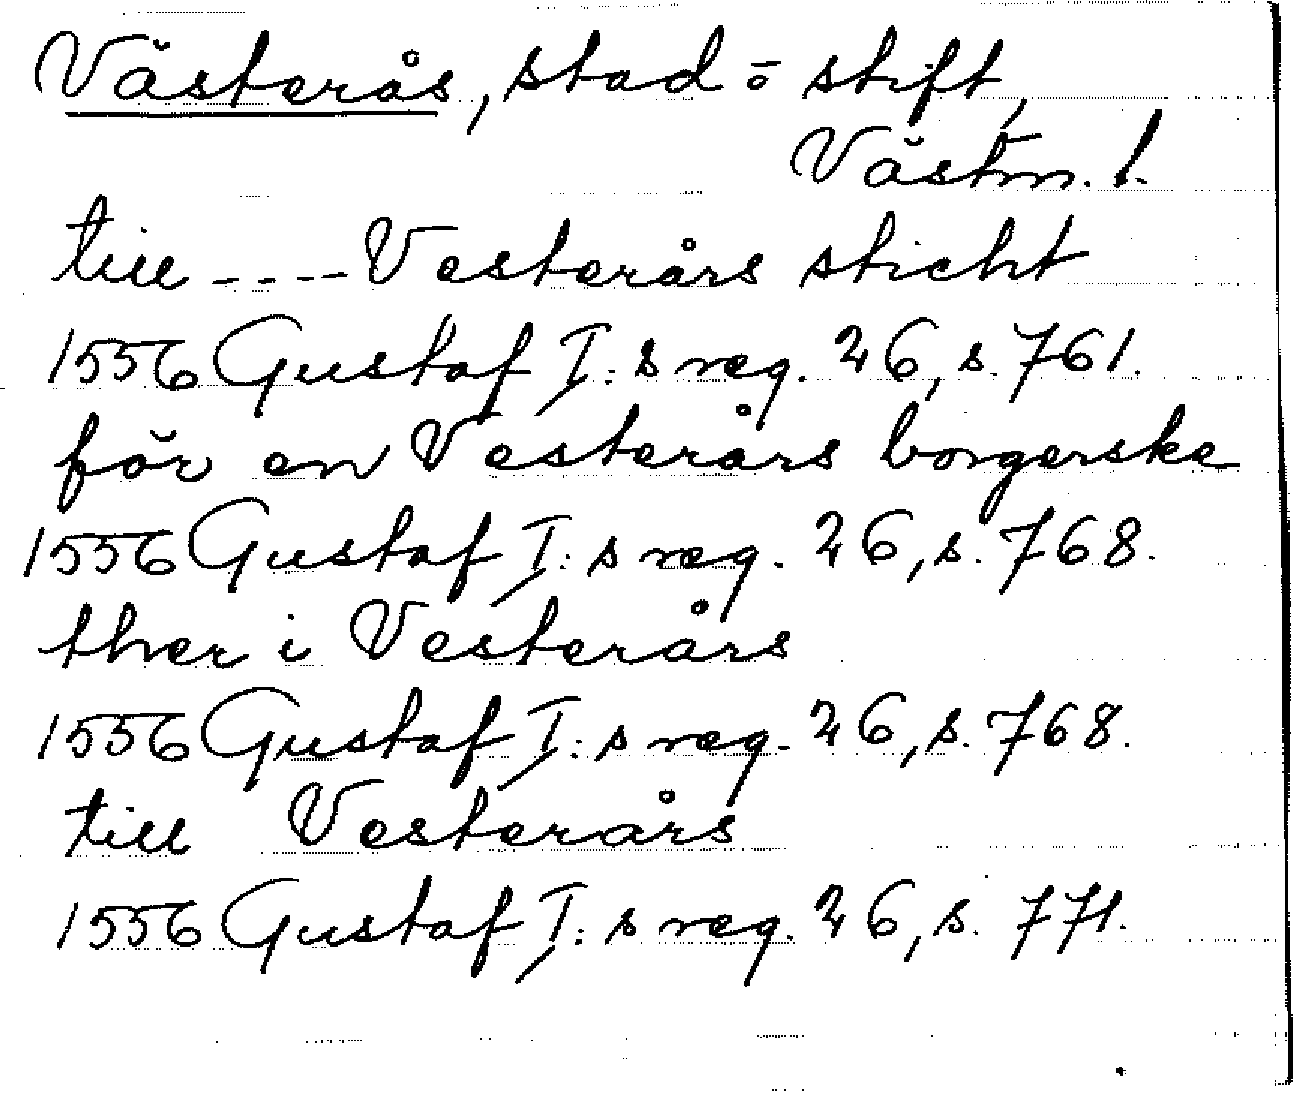 Västerås, stad o stift,
Västm. l.
till ---- Vesterårs sticht
1556 Gustaf I: s reg. 26, s. 761.
för en Vesterårs borgerske
1556 Gustaf I: s reg. 26, s. 768.
ther i Vesterårs
1556 Gustaf I: s reg. 26, s. 768.
till Vesterårs
1556 Gustaf I: s reg. 26, s. 771.